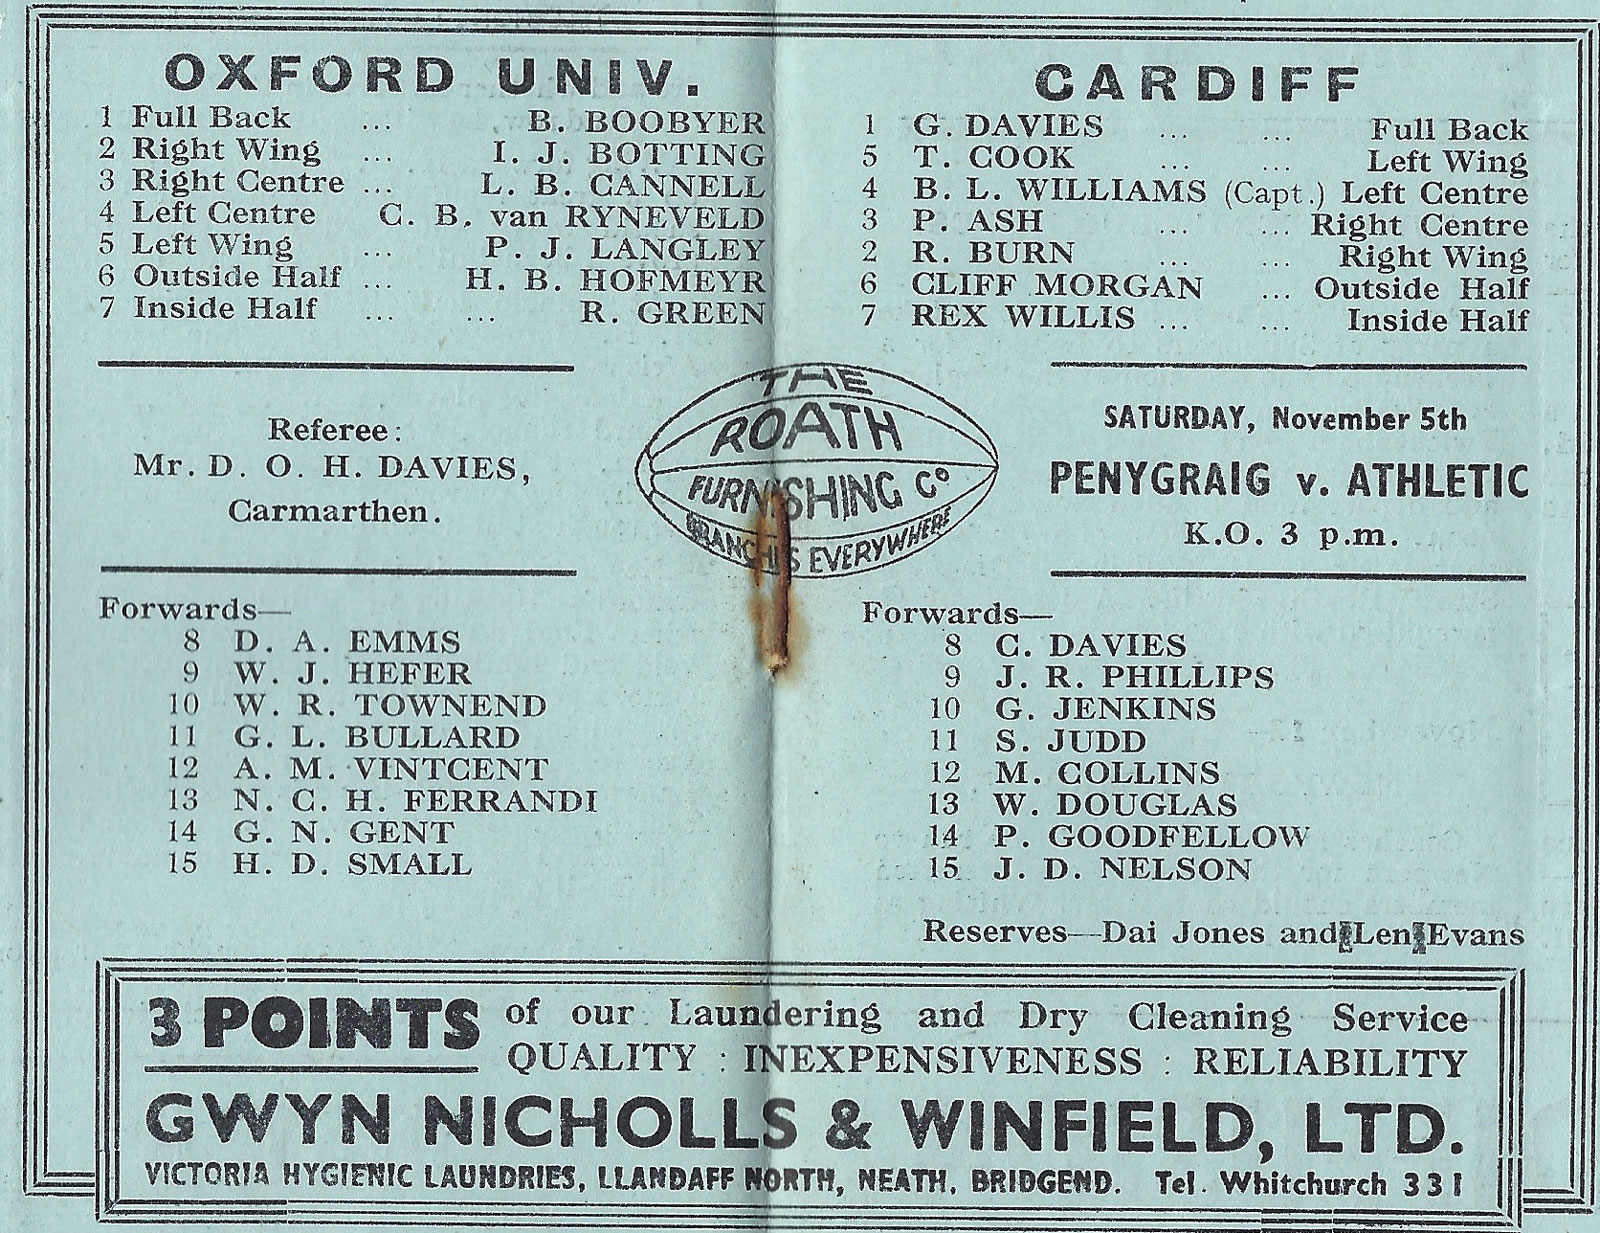 OXFORD UNIV.
1 Full Back ... B. BOOBYER
2 Right Wing ... I. J. BOTTING
3 Right Centre ... L. B. CANNELL
4 Left Centre C. B. van RYNEVELD
5 Left Wing ... P. J. LANGLEY
6 Outside Half ... H. B. HOFMEYR
7 Inside Half ... ... R. GREEN
Referee:
Mr. D. O. H. DAVIES,
Carmarthen.
Forwards—
8 D. A. EMMS
9 W. J. HEFER
10 W. R. TOWNEND
11 G. L. BULLARD
12 A. M. VINTCENT
13 N. C. H. FERRANDI
14 G. N. GENT
15 H. D. SMALL
THE
ROATH
FURNISHING Co
BRANCHES EVERYWHERE
CARDIFF
1 G. DAVIES ... ... Full Back
5 T. COOK ... ... Left Wing
4 B. L. WILLIAMS (Capt.) Left Centre
3 P. ASH ... ... Right Centre
2 R. BURN ... ... Right Wing
6 CLIFF MORGAN ... Outside Half
7 REX WILLIS ... ... Inside Half
SATURDAY, November 5th
PENYGRAIG v. ATHLETIC
K.O. 3 p.m.
Forwards—
8 C. DAVIES
9 J. R. PHILLIPS
10 G. JENKINS
11 S. JUDD
12 M. COLLINS
13 W. DOUGLAS
14 P. GOODFELLOW
15 J. D. NELSON
Reserves—Dai Jones and Len Evans
3 POINTS of our Laundering and Dry Cleaning Service
QUALITY : INEXPENSIVENESS : RELIABILITY
GWYN NICHOLLS & WINFIELD, LTD.
VICTORIA HYGIENIC LAUNDRIES, LLANDAFF NORTH, NEATH, BRIDGEND. Tel. Whitchurch 331